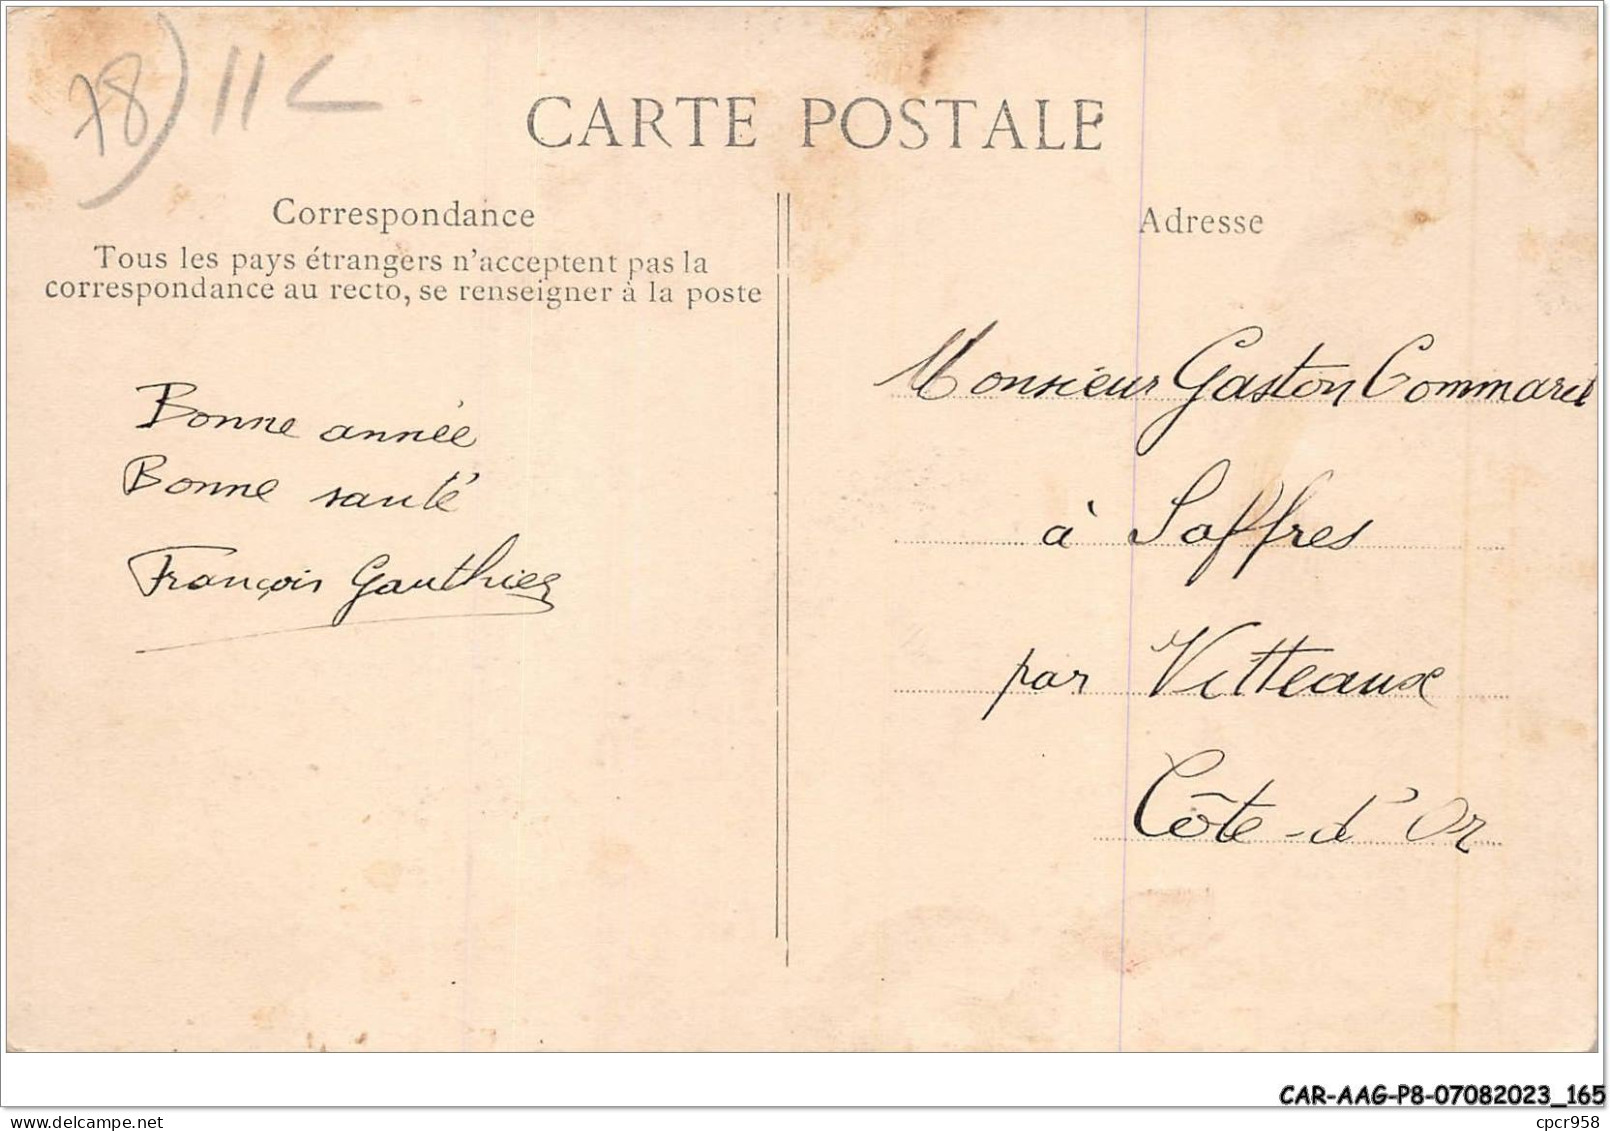 78) 11C
CARTE POSTALE
Correspondance
Tous les pays étrangers n'acceptent pas la
correspondance au recto, se renseigner à la poste
Bonne année
Bonne santé
François Gauthier
Adresse
Monsieur Gaston Commaret
à Saffres
par Vitteaux
Côte-d'Or
CAR-AAG-P8-07082023_165
delcampe.net
cpcr958